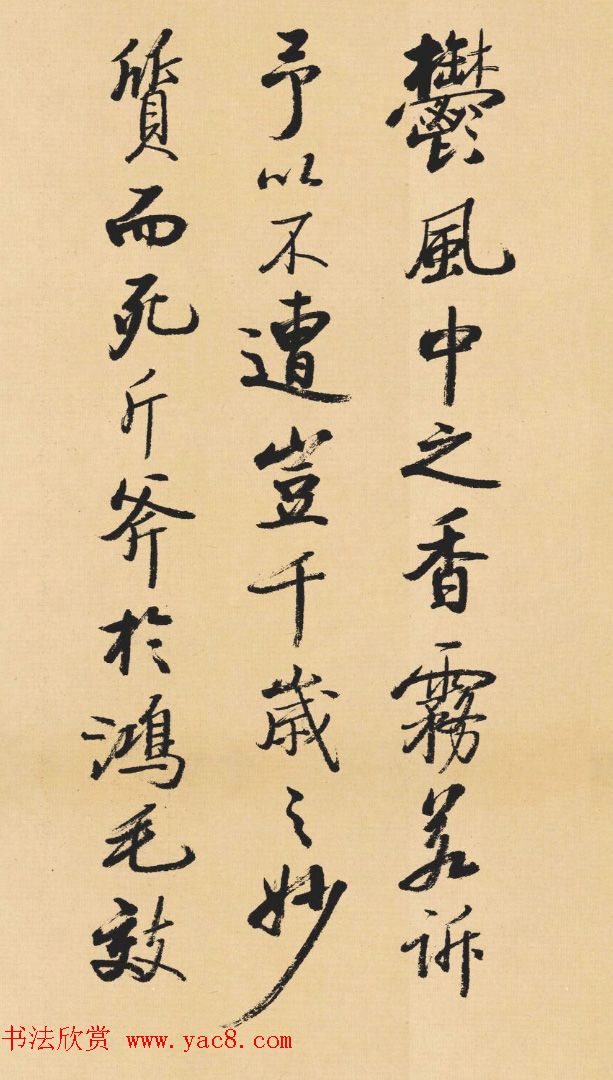 鬱風中之香霧若訴
予以不遭豈千歲之妙
質而死斤斧於鴻毛效
书法欣赏 www.yac8.com